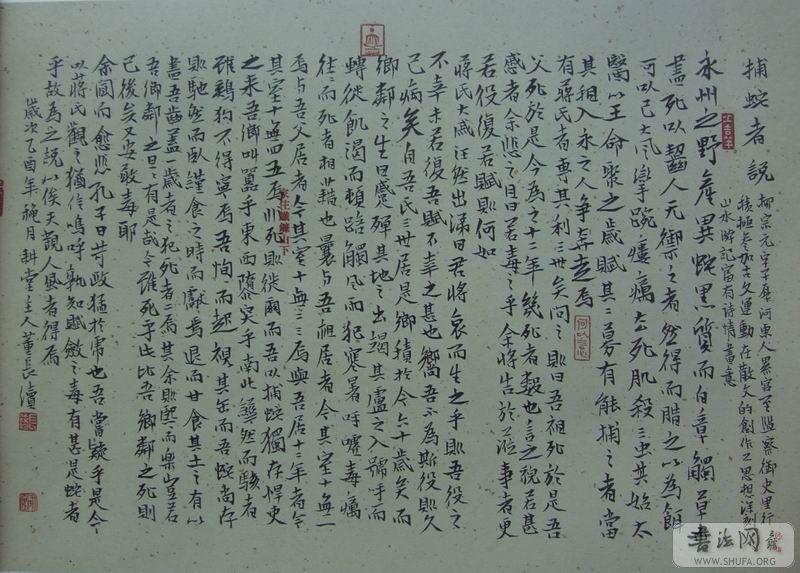 捕蛇者說
柳宗元字子厚河東人累官至監察御史里行
積極參加古文運動在散文的創作上思想深刻
山水游記富有詩情畫意
永州之野產異蛇黑質而白章觸草
盡死以齧人无禦之者然得而腊之以為餌
可以已大風攣踠瘻癘去死肌殺三虫其始太
醫以王命聚之歲賦其二募有能捕之者當
其租入永之人爭奔走焉
有蔣氏者專其利三世矣問之則曰吾祖死於是吾
父死於是今為之十二年幾死者數也言之貌若甚
慼者余悲之且曰若毒之乎余將告於蒞事者更
若役復若賦則何如
蔣氏大慼汪然出涕曰君將哀而生之乎則吾役之
不幸未若復吾賦不幸之甚也嚮吾不為斯役則久
已病矣自吾氏三世居是鄉積於今六十歲矣而
鄉鄰之生日蹙殫其地之出竭其廬之入號呼而
轉徙飢渴而頓踣觸風而犯寒暑呼噓毒癘
往往而死者相藉也曩與吾祖居者今其室十無一
焉與吾父居者今其室十無二三焉與吾居十二年者今
其室十無四五焉非死則徙爾而吾以捕蛇獨存悍吏
之來吾鄉叫囂乎東西隳突乎南北譁然而駭者
雖鷄狗不得寧焉吾恂恂而起視其缶而吾蛇尚存
則弛然而臥謹食之時而獻焉退而甘食其土之有以
盡吾齒蓋一歲者之犯死者二焉其余則熙熙而樂豈若
吾鄉鄰之旦旦有是哉今雖死乎此比吾鄉鄰之死則
已後矣又安敢毒耶
余聞而愈悲孔子曰苛政猛於虎也吾嘗疑乎是今
以蔣氏觀之猶信嗚呼孰知賦斂之毒有甚是蛇者
乎故為之說以俟夫觀人風者得焉
歲次乙酉年月耕堂主人董長
書法网
WWW.SHUFA.ORG